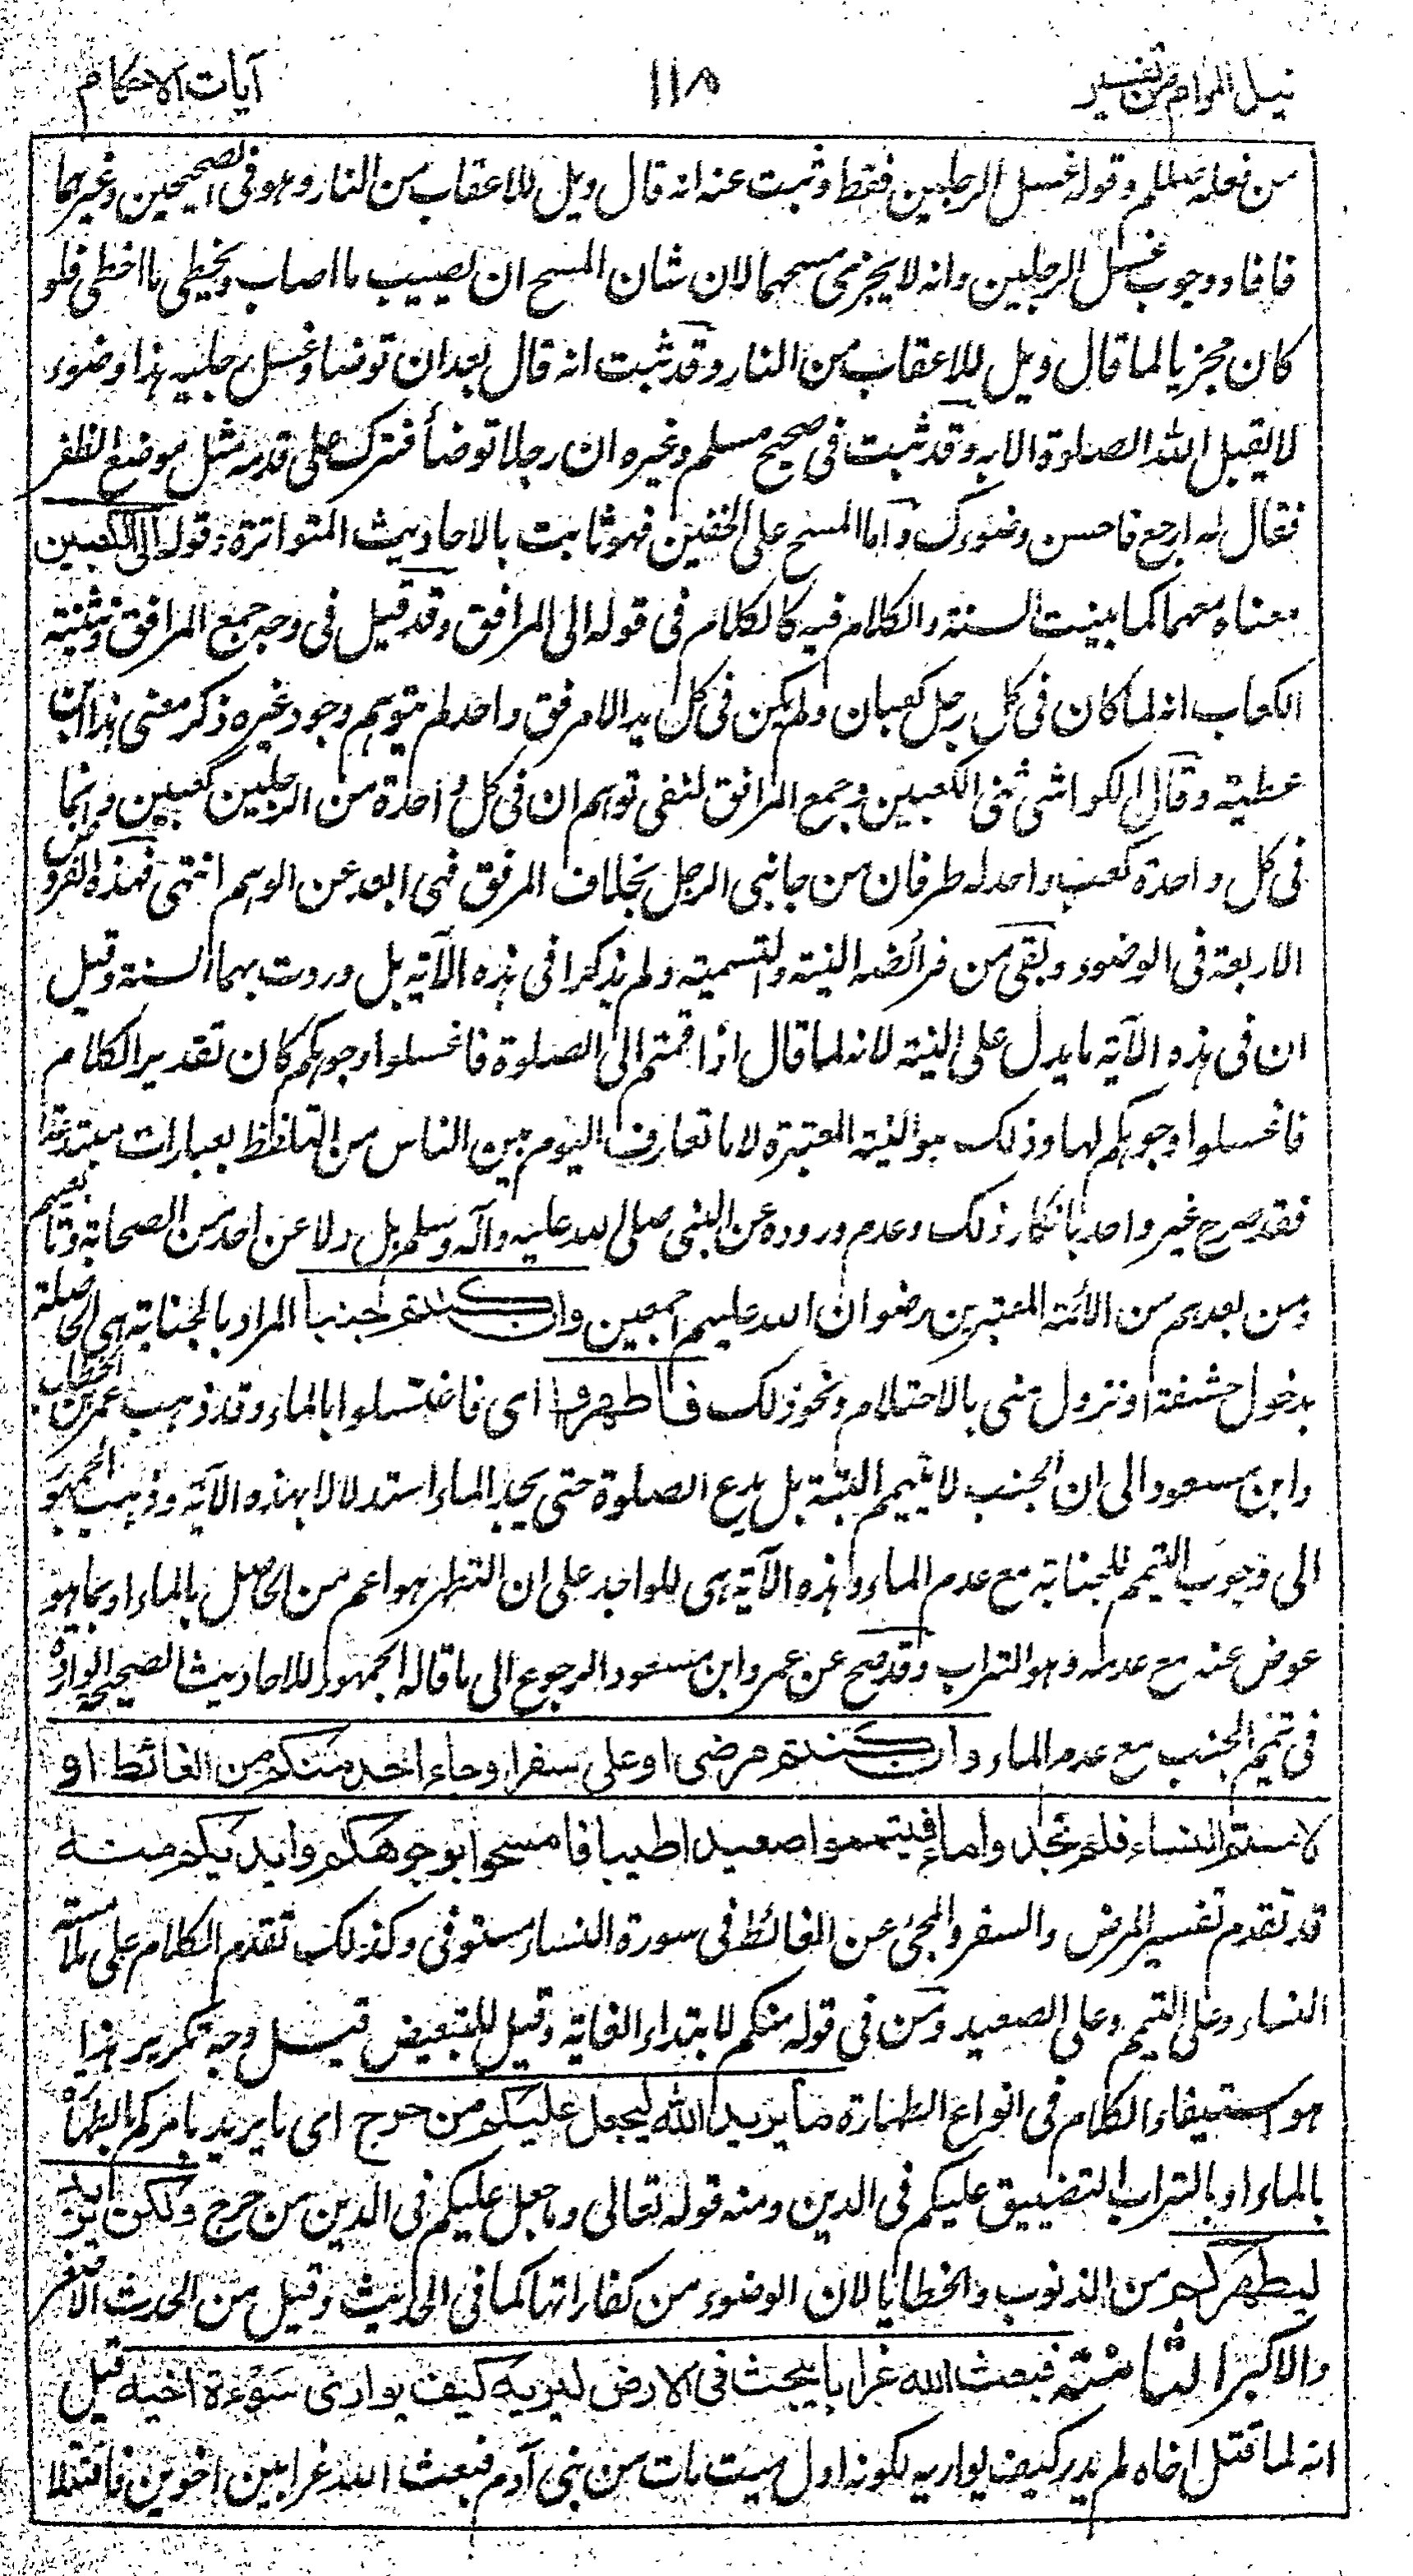 نيل المرام من تفسير ١١٨ آيات الاحكام
من فعله صللم وقوله غسل الرجلين فقط وثبت عنه انه قال ويل للاعقاب من النار وهو فى الصحيحين وغيرها
فافاد وجوب غسل الرجلين وانه لا يجزى مسحهما لان شان المسح ان يصيب ما اصاب ويخطى ما اخطى فلو
كان مجزيا لما قال ويل للاعقاب من النار وقد ثبت انه قال بعد ان توضا وغسل رجليه هذا وضوء
لا يقبل الله الصلوة الا به وقد ثبت فى صحيح مسلم وغيره ان رجلا توضأ فترك على قدمه مثل موضع الظفر
فقال له ارجع فاحسن وضوءك واما المسح على الخفين فهو ثابت بالاحاديث المتواترة وقوله الى الكعبين
معناه معهما كما بينت السنة والكلام فيه كالكلام فى قوله الى المرافق وقد قيل فى وجه جمع المرافق وتثنية
الكعاب انه لما كان فى كل رجل كعبان ولم يكن فى كل يد الا مرفق واحد لم يتوهم وجود غيره ذكر معنى هذا ابن
عطية وقال الكواشى ثنى الكعبين وجمع المرافق لنفى توهم ان فى كل واحدة من الرجلين كعبين وانما
فى كل واحدة كعب واحد له طرفان من جانبى الرجل بخلاف المرفق فهى ابعد عن الوهم انتهى فهذه الفروض
الاربعة فى الوضوء وبقى من فرائضه النية والتسمية ولم يذكرا فى هذه الآية بل وردت بهما السنة وقيل
ان فى هذه الآية ما يدل على النية لانه لما قال اذا قمتم الى الصلوة فاغسلوا وجوهكم كان تقدير الكلام
فاغسلوا وجوهكم لها وذلك هو النية المعتبرة لا ما تعارف اليوم بين الناس من التلفظ بعبارات مبتدعة
فقد صرح غير واحد بانكار ذلك وعدم وروده عن النبى صلى الله عليه وآله وسلم بل ولا عن احد من الصحابة وتابعيهم
ومن بعدهم من الائمة المعتبرين رضوان الله عليهم اجمعين وان كنتم جنبا المراد بالجنابة هى الحاصلة
بدخول حشفة او نزول منى بالاحتلام ونحو ذلك فاطهروا اى فاغتسلوا بالماء وقد ذهب عمر بن الخطاب
وابن مسعود الى ان الجنب لا يتيمم البتة بل يدع الصلوة حتى يجد الماء استدلالا بهذه الآية وذهب الجمهور
الى وجوب التيمم للجنابة مع عدم الماء وهذه الآية هى للواجد على ان التطهر هو اعم من الحاصل بالماء او بما هو
عوض عنه مع عدمه وهو التراب وقد صح عن عمر وابن مسعود الرجوع الى ما قاله الجمهور للاحاديث الصحيحة الواردة
فى تيمم الجنب مع عدم الماء وان كنتم مرضى او على سفر او جاء احد منكم من الغائط او
لامستم النساء فلم تجدوا ماء فتيمموا صعيدا طيبا فامسحوا بوجوهكم وايديكم منه
قد تقدم تفسير المرض والسفر والمجئ عن الغائط فى سورة النساء مستوفى وكذلك تقدم الكلام على ملامسة
النساء وعلى التيمم وعلى الصعيد ومن فى قوله منكم لابتداء الغاية وقيل للتبعيض قيل وجه تكرير هذا
هو استيفاء الكلام فى انواع الطهارة ما يريد الله ليجعل عليكم من حرج اى ما يريد بامركم بالطهارة
بالماء او بالتراب التضييق عليكم فى الدين ومنه قوله تعالى وما جعل عليكم فى الدين من حرج ولكن يريد
ليطهركم من الذنوب والخطايا لان الوضوء من كفاراتها كما فى الحديث وقيل من الحدث الاصغر
والاكبر الثامنة فبعث الله غرابا يبحث فى الارض ليريه كيف يوارى سوءة اخيه قيل
انه لما قتل اخاه لم يدر كيف يواريه لكونه اول ميت مات من بنى آدم فبعث الله غرابين اخوين فاقتتلا